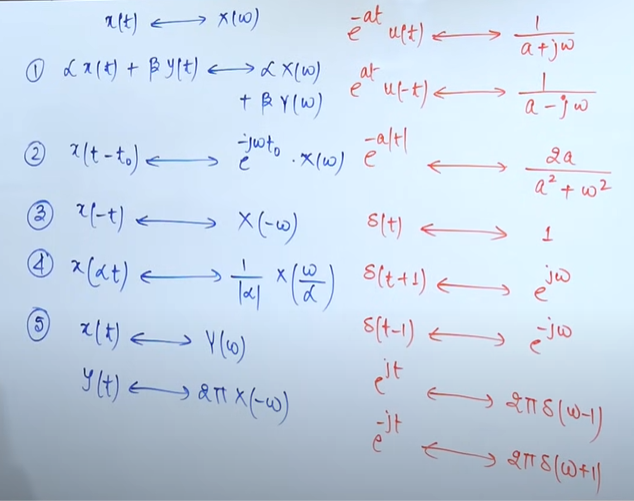 x(t) ⟷ X(ω)
① α x(t) + β y(t) ⟷ α X(ω)
+ β Y(ω)
② x(t-t₀) ⟷ e^{-jωt₀} · X(ω)
③ x(-t) ⟷ X(-ω)
④ x(αt) ⟷ 1/|α| X(ω/α)
⑤ x(t) ⟷ Y(ω)
y(t) ⟷ 2π X(-ω)
e^{-at} u(t) ⟷ 1/(a+jω)
e^{at} u(-t) ⟷ 1/(a-jω)
e^{-a|t|} ⟷ 2a/(a²+ω²)
δ(t) ⟷ 1
δ(t+1) ⟷ e^{jω}
δ(t-1) ⟷ e^{-jω}
e^{jt} ⟷ 2π δ(ω-1)
e^{-jt} ⟷ 2π δ(ω+1)